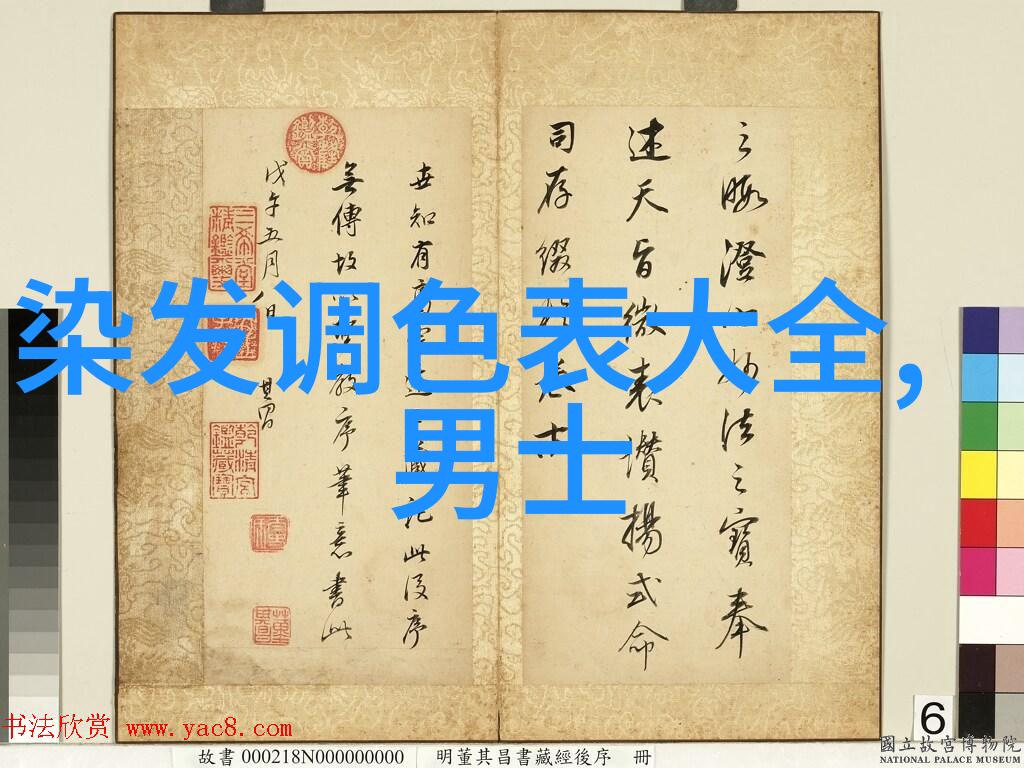 染发调色表大全,
男士
之暇澄心妙法之寶奉
述天旨微表讚揚式命
司存綴於卷
世知有
藏記此後序
無傳故
序筆意書此
戊午五月八日
其昌
书法欣赏 www.yac8.com
故書 000218N000000000 明董其昌書藏經後序 冊
6
國立故宮博物院
NATIONAL PALACE MUSEUM